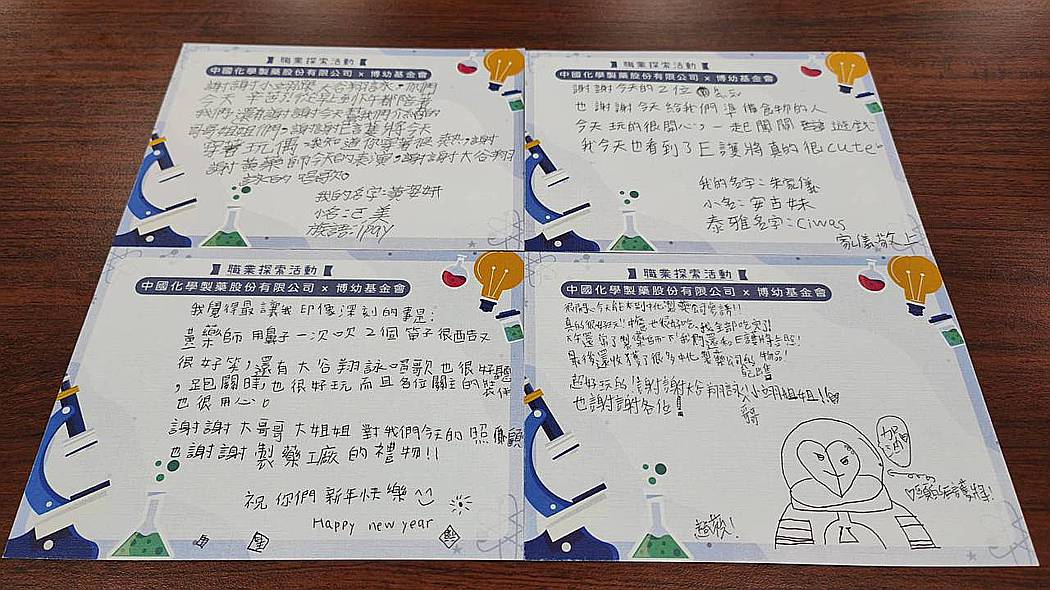 職業探索活動
中國化學製藥股份有限公司 × 博幼基金會
謝謝小翊跟大谷翔詠,你們
今天辛苦了從早上到下午都陪著
我們,還謝謝今天
哥哥姐姐們,謝謝E護將今天
穿著玩偶,我知道你穿著很熱,謝
謝黃藥師今天的表演,謝謝大谷翔
詠的唱歌。
我的名字:黃
族語:Ipay
職業探索活動
中國化學製藥股份有限公司 × 博幼基金會
謝謝今天的2位
也謝謝今天給我們準備食物的人
今天玩的很開心,一起闖關 遊戲
我今天也看到了E護將真的很cute~
我的名字:朱家儀
小名:安古妹
泰雅名字:Ciwas
家儀敬上
職業探索活動
中國化學製藥股份有限公司 × 博幼基金會
我覺得最讓我印像深刻的事是:
黃藥師用鼻子一次吹2個笛子很酷又
很好笑,還有大谷翔詠唱歌也很好聽
,足包關時也很好玩而且各位關主的裝備
也很用心。
謝謝大哥哥大姐姐對我們今天的照顧
也謝謝製藥工廠的禮物!!
祝你們新年快樂
Happy new year
職業探索活動
中國化學製藥股份有限公司 × 博幼基金會
今天能來到中化製藥公司
真的很好玩!!也很好吃,我全部吃完了!
下午還當了製藥師
最後還收穫了很多中化製藥公司的物品!
超好玩的!謝謝大谷翔詠、小翊姐姐!!
也謝謝各位!
加油